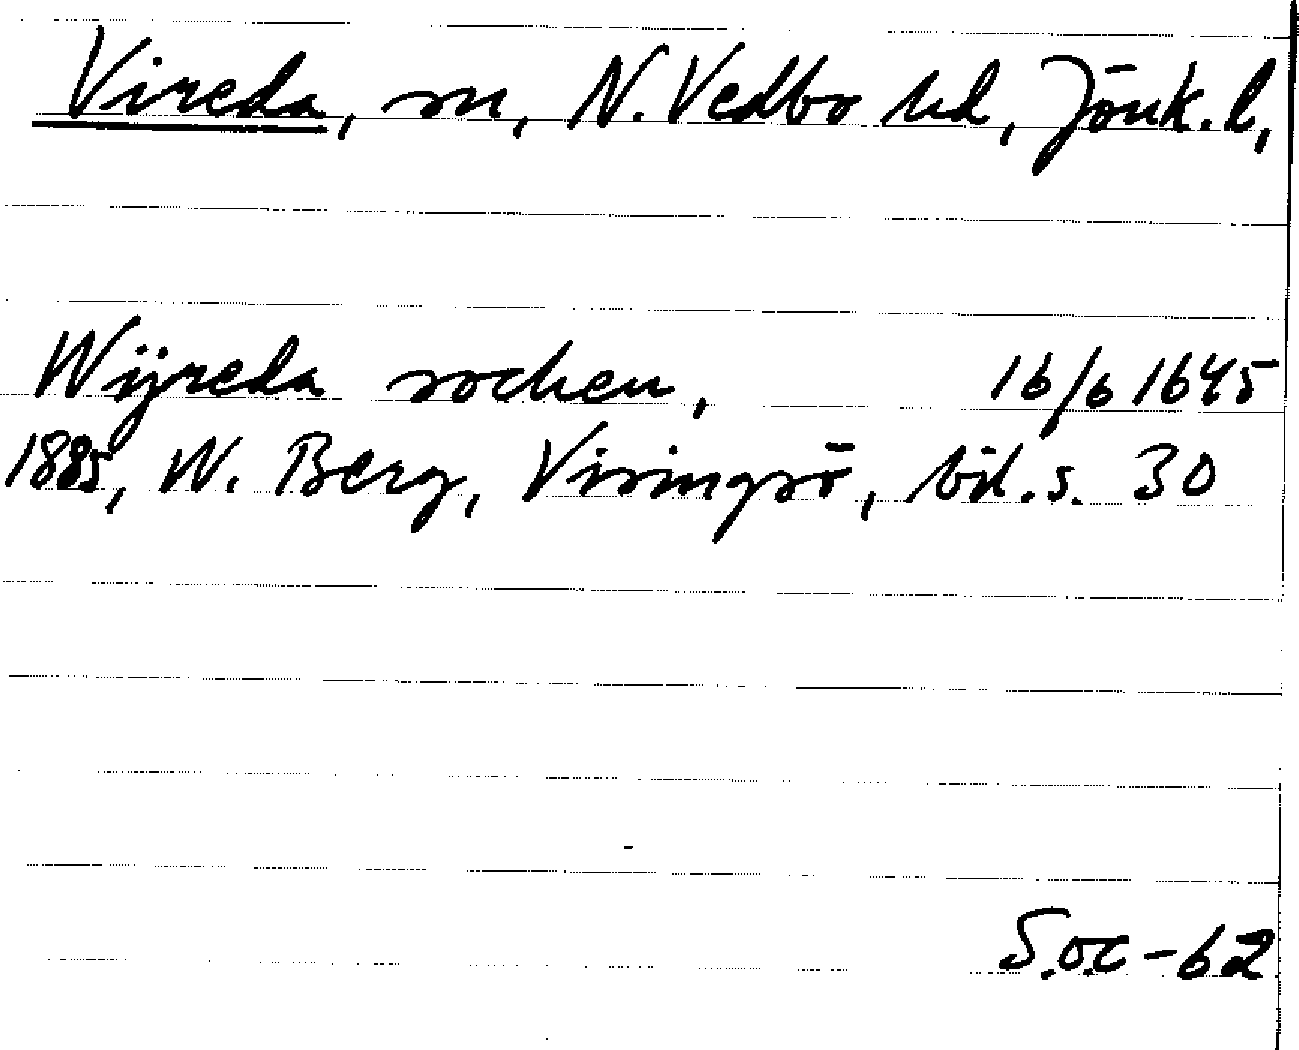 Vireda, sn, N. Vedbo hd, Jönk. l,
Wijreda sochen, 16/6 1645
1885, W. Berg, Visingsö, bil. s. 30
S.O.C -62